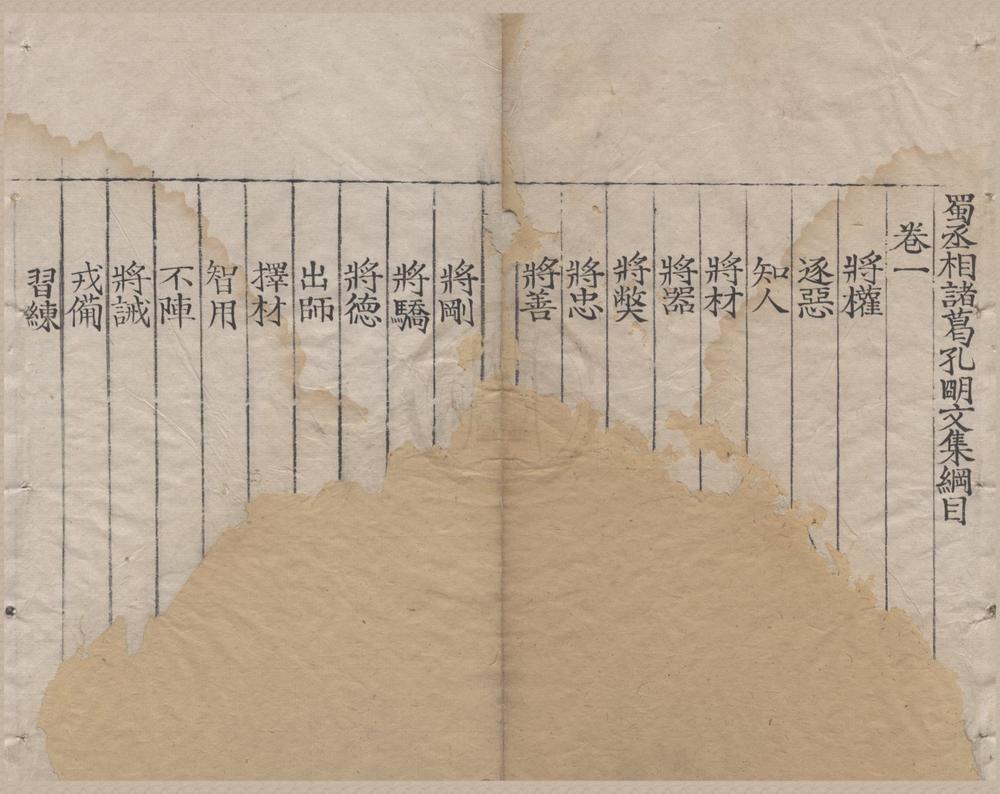 蜀丞相諸葛孔明文集綱目
卷一
將權
逐惡
知人
將材
將器
將獘
將忠
將善
將剛
將驕
將德
出師
擇材
智用
不陣
將誡
戎備
習練